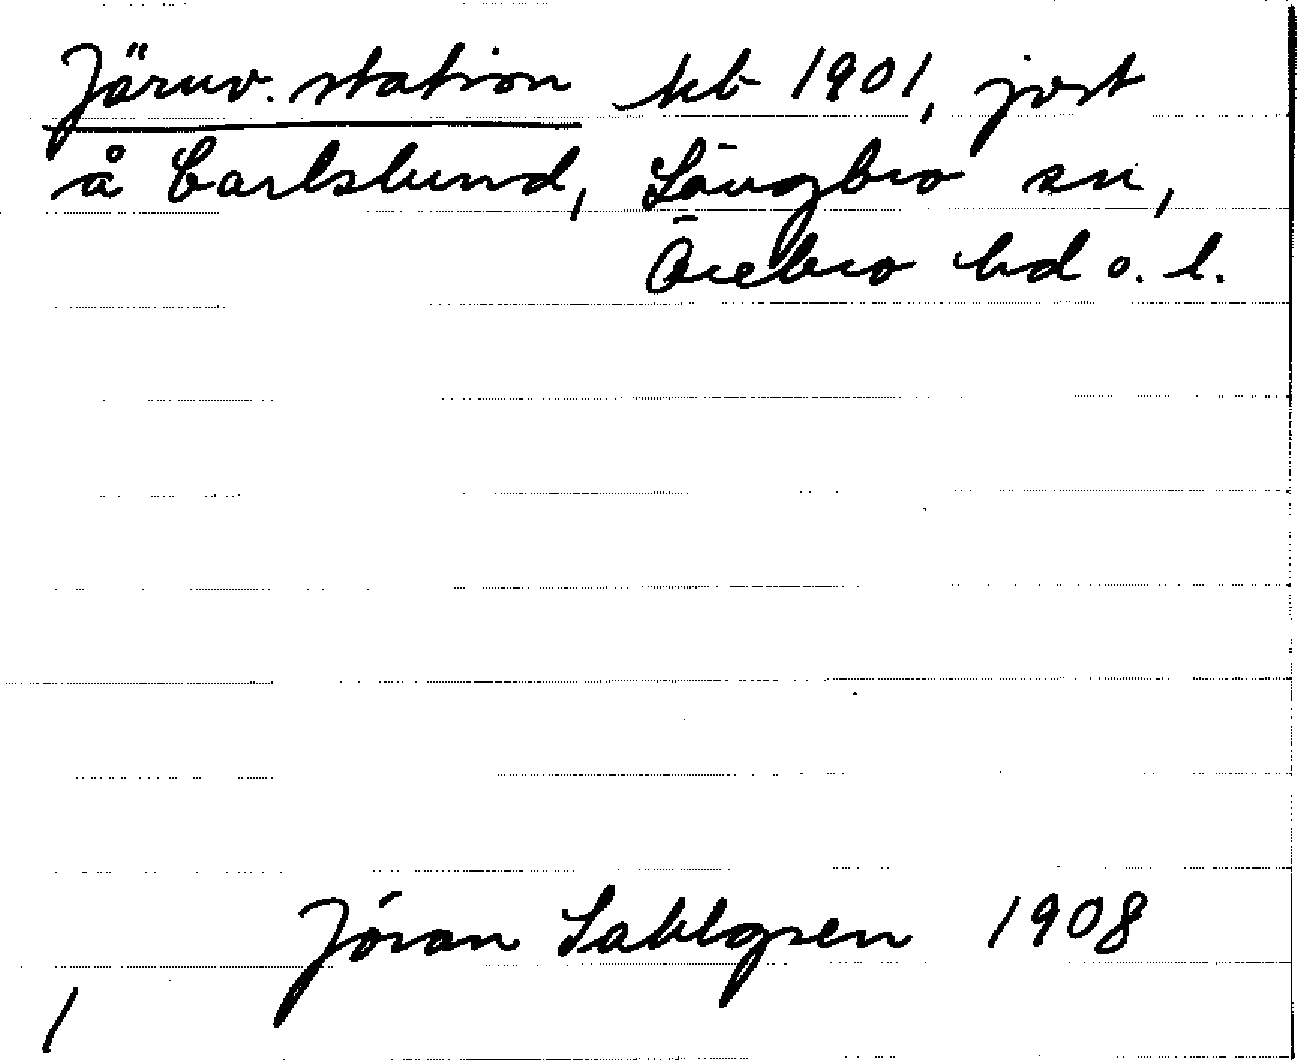 Järnv. station tkt 1901, jost
å Carlslund, Längbro sn,
Örebro hd o. l.
Jöran Sahlgren 1908
1